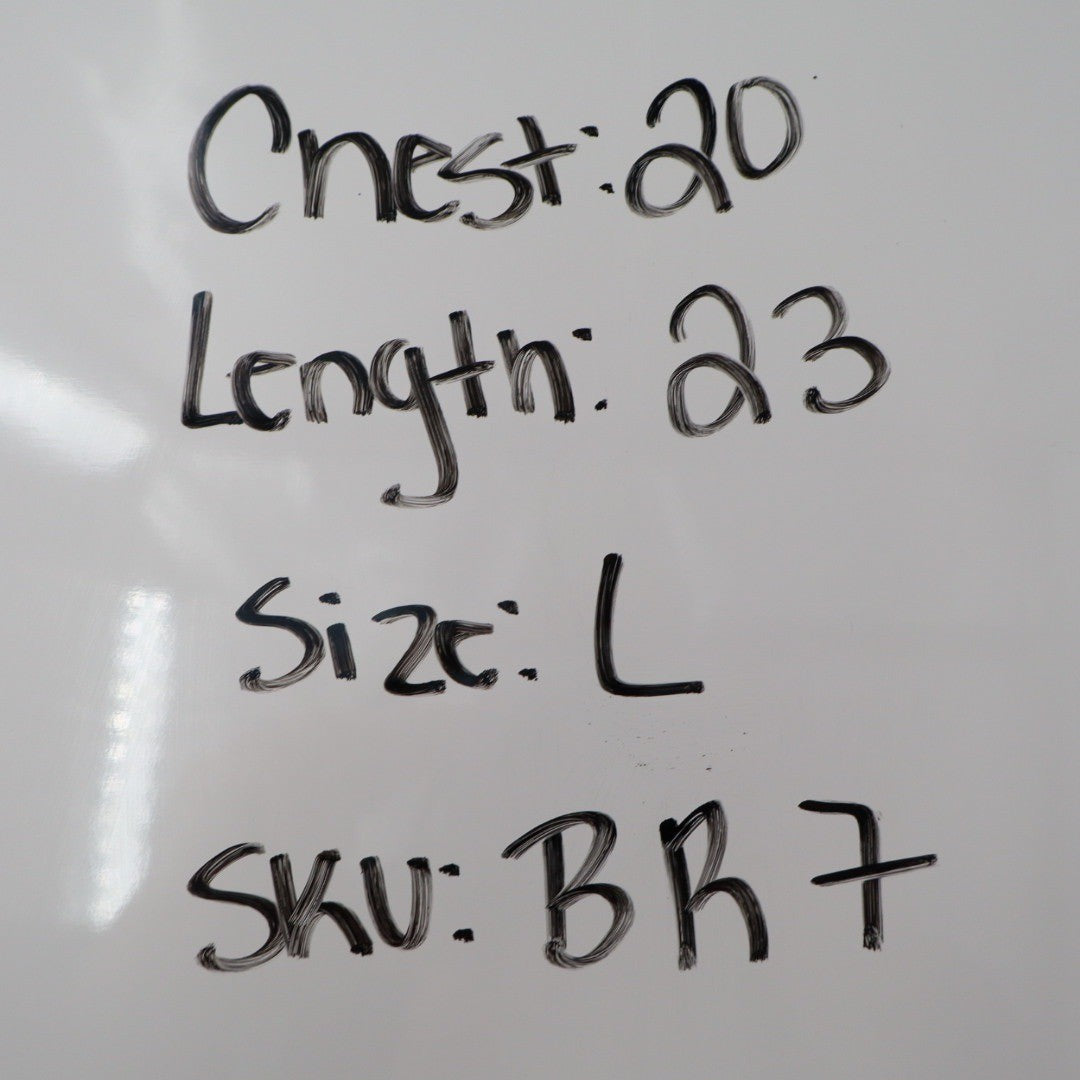 Chest: 20
Length: 23
Size: L
SKU: BR7